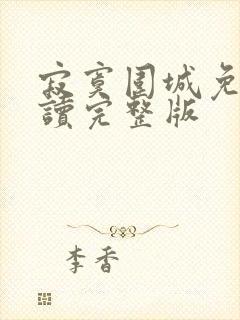 寂寞围城免
讀完整版
李香